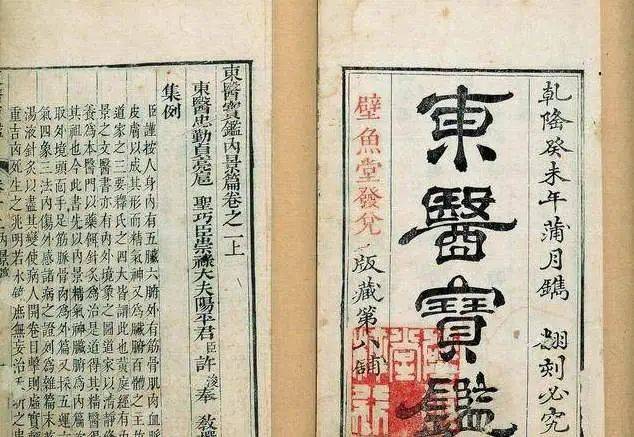 乾隆癸未年蒲月鐫 翻刻必究
東醫寶鑑
壁魚堂發兌
版藏第八鋪
東醫寶鑑內景篇卷之一上
東醫忠勤貞亮扈 聖巧臣崇祿大夫陽平君臣許 浚奉 敎撰
集例
臣謹按人身內有五臟六腑外有筋骨肌肉血脈
皮膚以成其形而精氣神又爲臟腑百體之主故
道家之三要釋氏之四大皆謂此也黃庭經有內
景之文醫書亦有內外境象之圖道家以清靜修
養為本醫門以藥餌針灸爲治是道得其精醫得
其粗也今此書先以內景精氣神臟腑為內篇
取外境頭面手足筋脈骨肉為外篇又採五運六
氣四象三法內傷外感諸病之證列為雜篇末著
湯液針灸以盡其變使病人開卷目擊則虛實輕
重吉凶死生之兆明若水鏡庶無妄治夭折之患